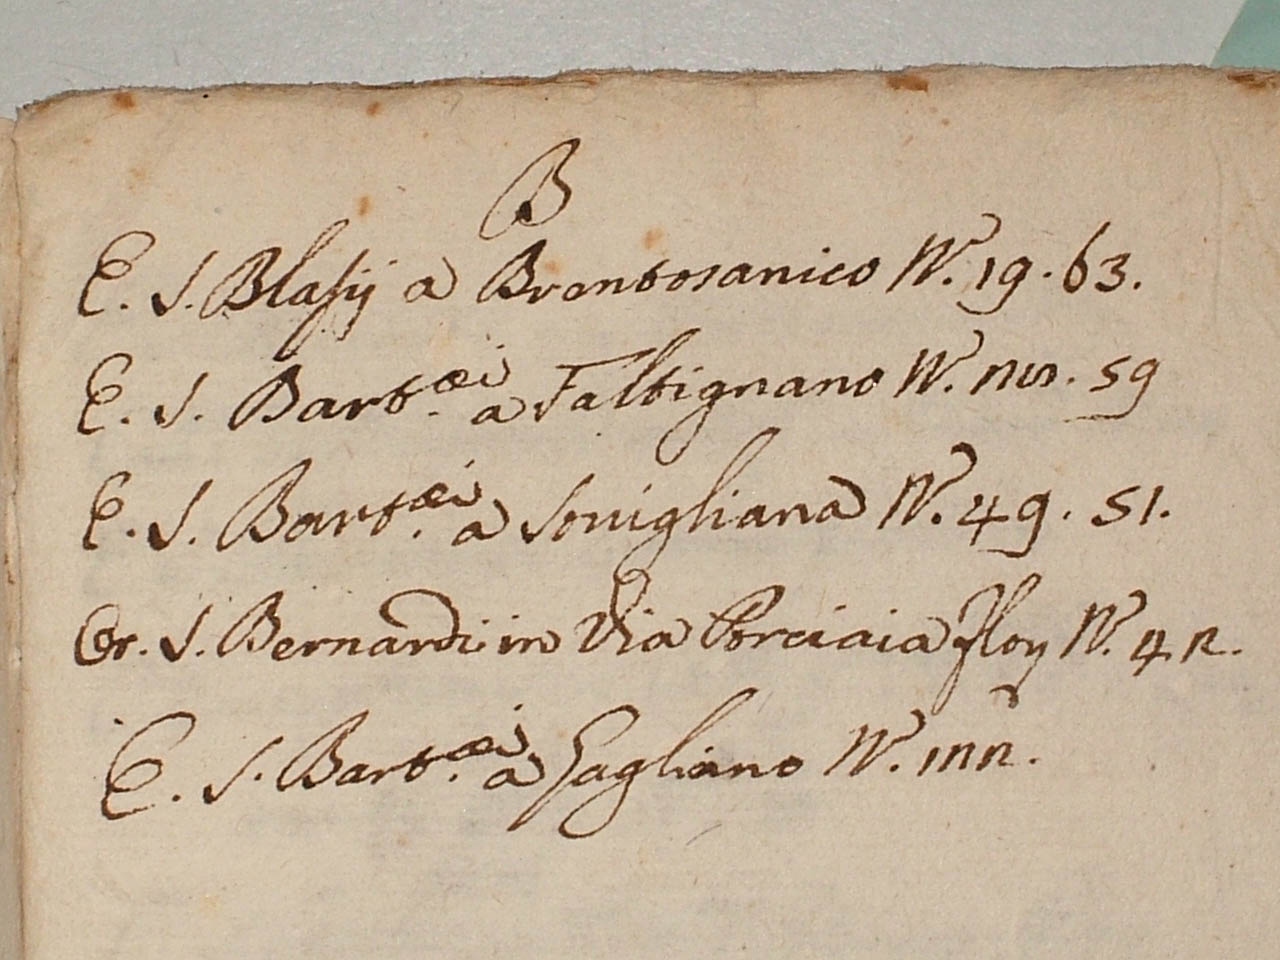 B
E. S. Blasij a Brentosanico N. 19. 63.
E. S. Bart.æi a Faltignano N. 59
E. S. Bart.æi a Sovigliana N. 49. 51.
Or. S. Bernardi in Via Porciaia Flor N. 42.
E. S. Bart.æi a Gagliano N.